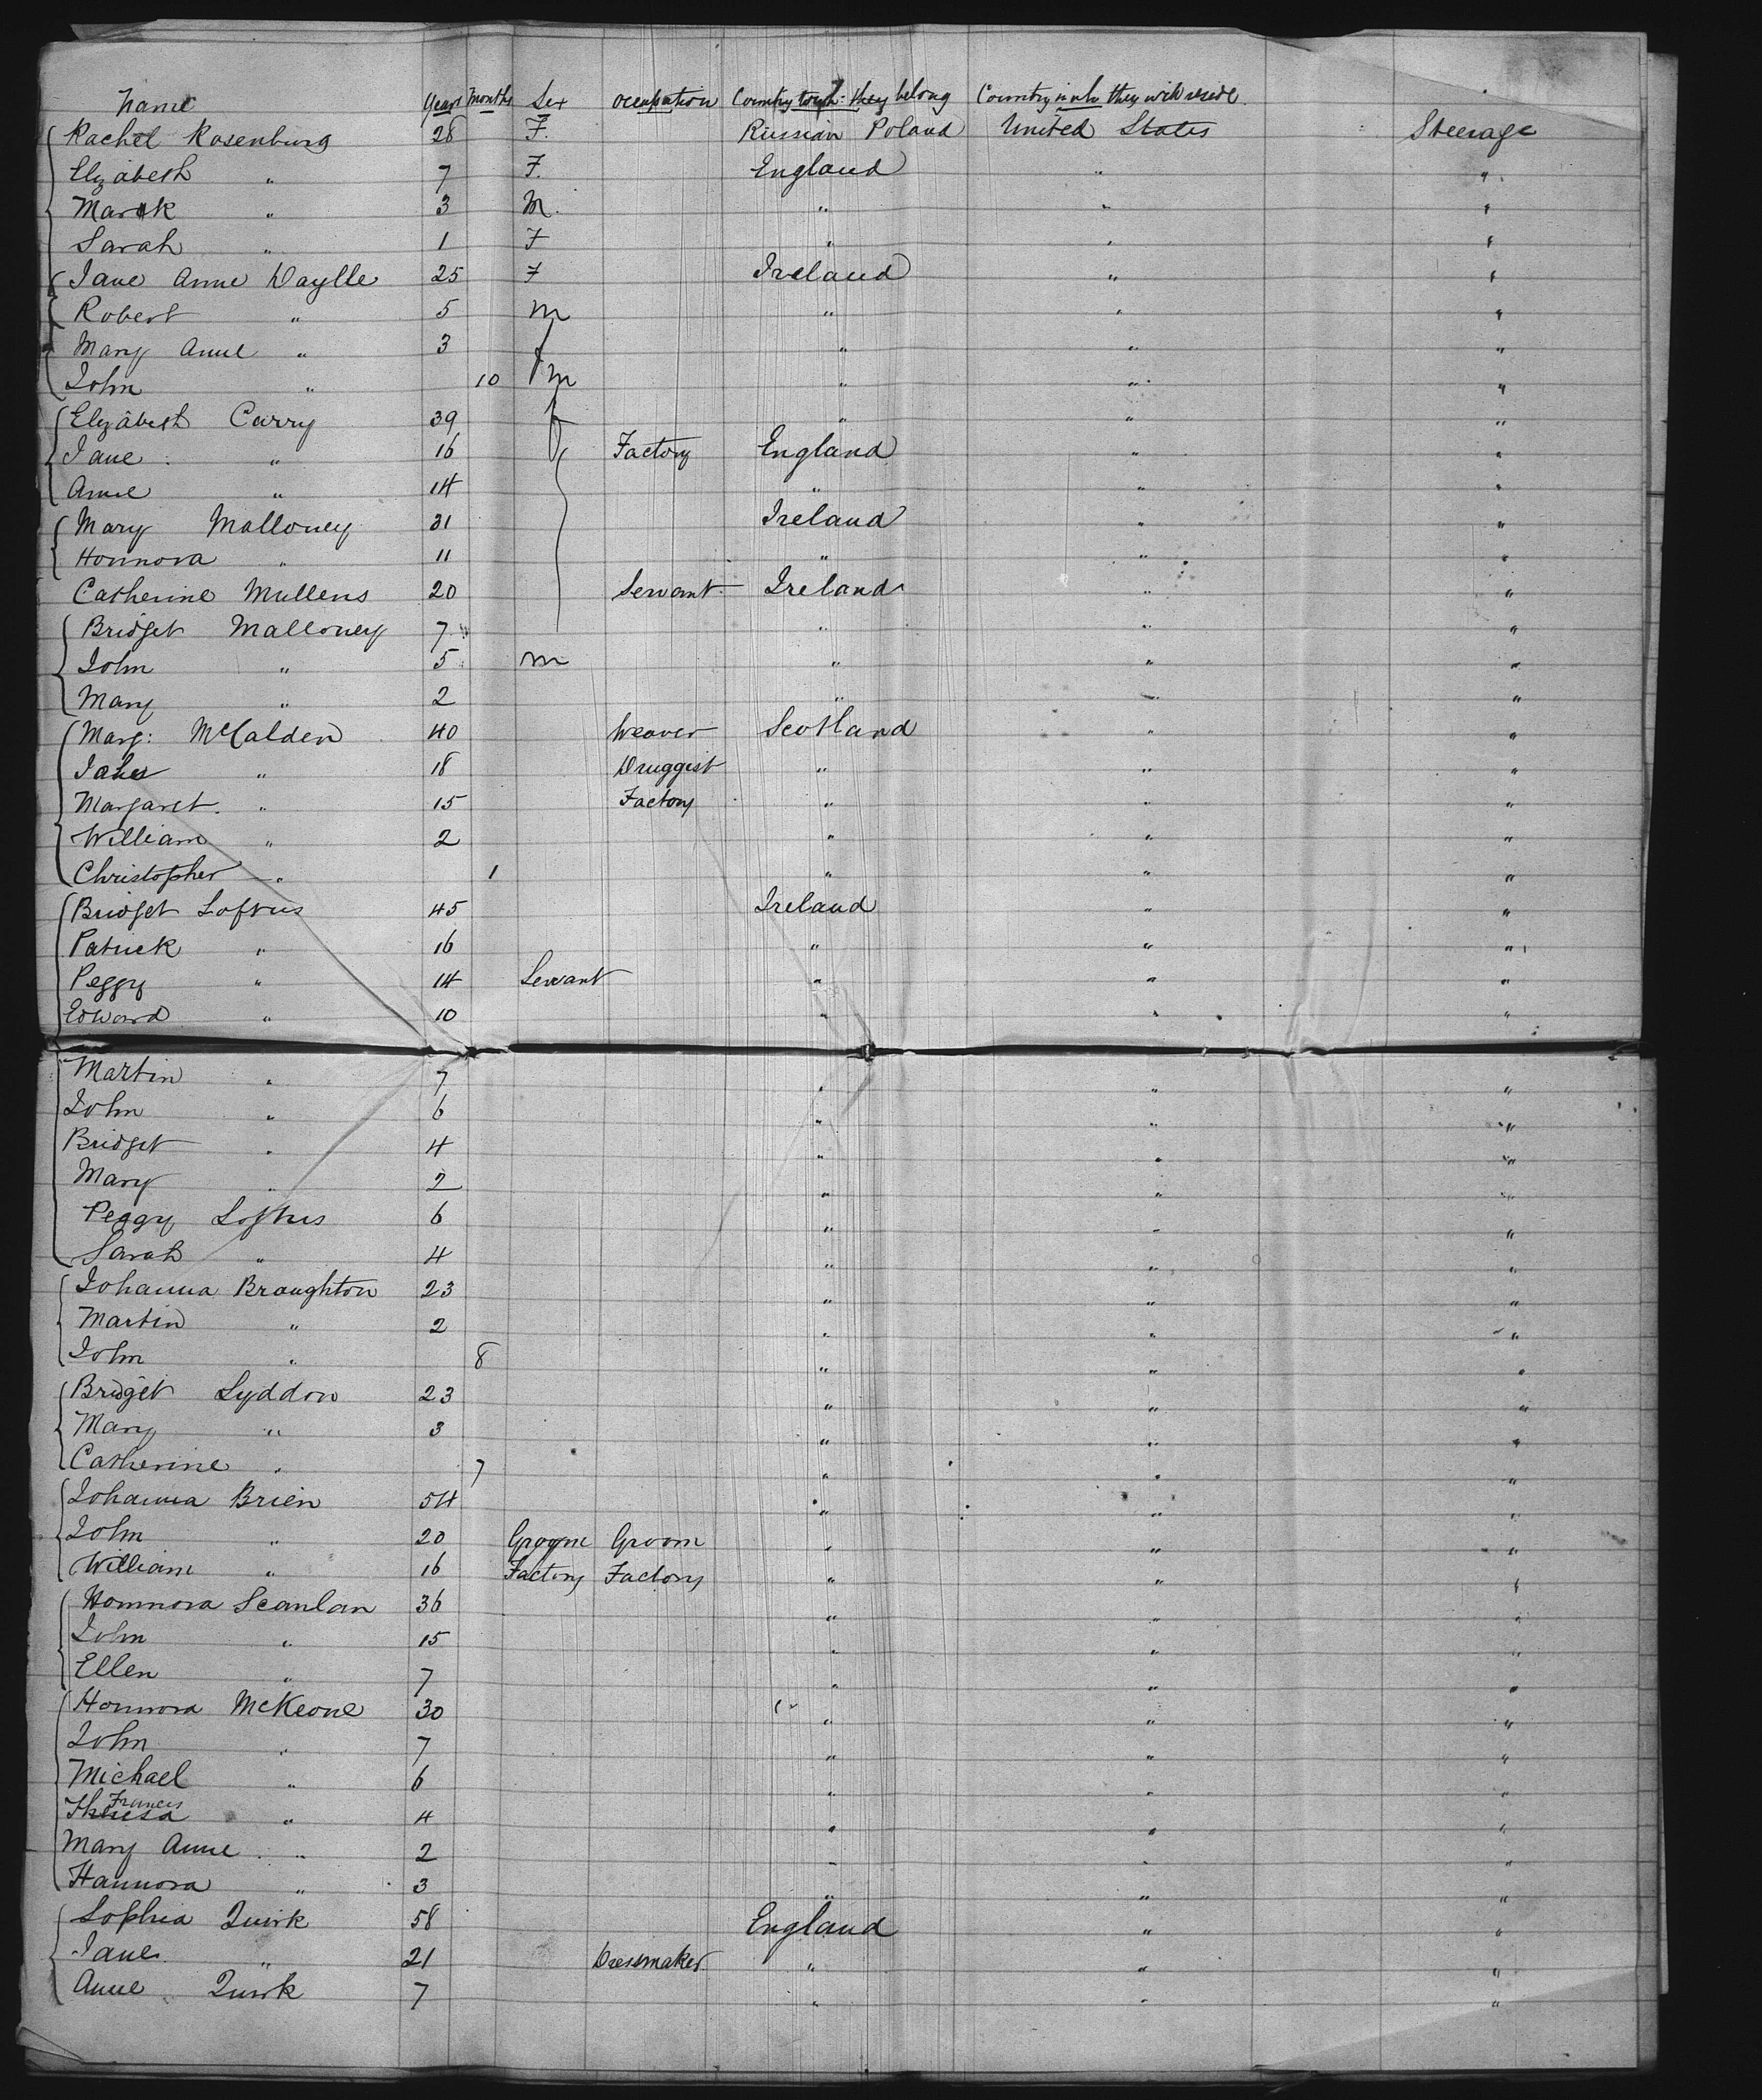 Name Years Months Sex Occupation Country to wh: they belong Country in wh they will reside
Rachel Rosenburg 28 F. Russian Poland United States Steerage
Elizabeth " 7 F. England " "
Mark " 3 M. " " "
Sarah " 1 F " " "
Jane Anne Daylle 25 F Ireland " "
Robert " 5 m " " "
Mary Anne " 3 f " " "
John " 10 m " " "
Elizabeth Carry 39 f " " "
Jane " 16 Factory England " "
Anne " 14 " " "
Mary Malloney 31 Ireland " "
Honnora " 11 " " "
Catherine Mullens 20 Servant Ireland " "
Bridget Malloney 7 " " "
John " 5 m " " "
Mary " 2 " " "
Marg: McCalden 40 Weaver Scotland " "
" 18 Druggist " " "
Margaret " 15 Factory " " "
William " 2 " " "
Christopher " 1 " " "
Bridget Loftus 45 Ireland " "
Patrick " 16 " " "
Peggy " 14 Servant " " "
Edward " 10 " " "
Martin " 7 " " "
John " 6 " " "
Bridget " 4 " " "
Mary " 2 " " "
Peggy Loftus 6 " " "
Sarah " 4 " " "
Johanna Braughton 23 " " "
Martin " 2 " " "
John " 8 " " "
Bridget Lyddon 23 " " "
Mary " 3 " " "
Catherine " 7 " " "
Johanna Brien 54 " " "
John " 20 Groom Groom " " "
William " 16 Factory Factory " " "
Honnora Scanlan 36 " " "
John " 15 " " "
Ellen " 7 " " "
Honnora McKeone 30 " " "
John " 7 " " "
Michael " 6 " " "
Frances
Theresa " 4 " " "
Mary Anne " 2 " " "
Hannora " 3 " " "
Sophia Quirk 58 England " "
Jane " 21 Dressmaker " " "
Anne Quirk 7 " " "